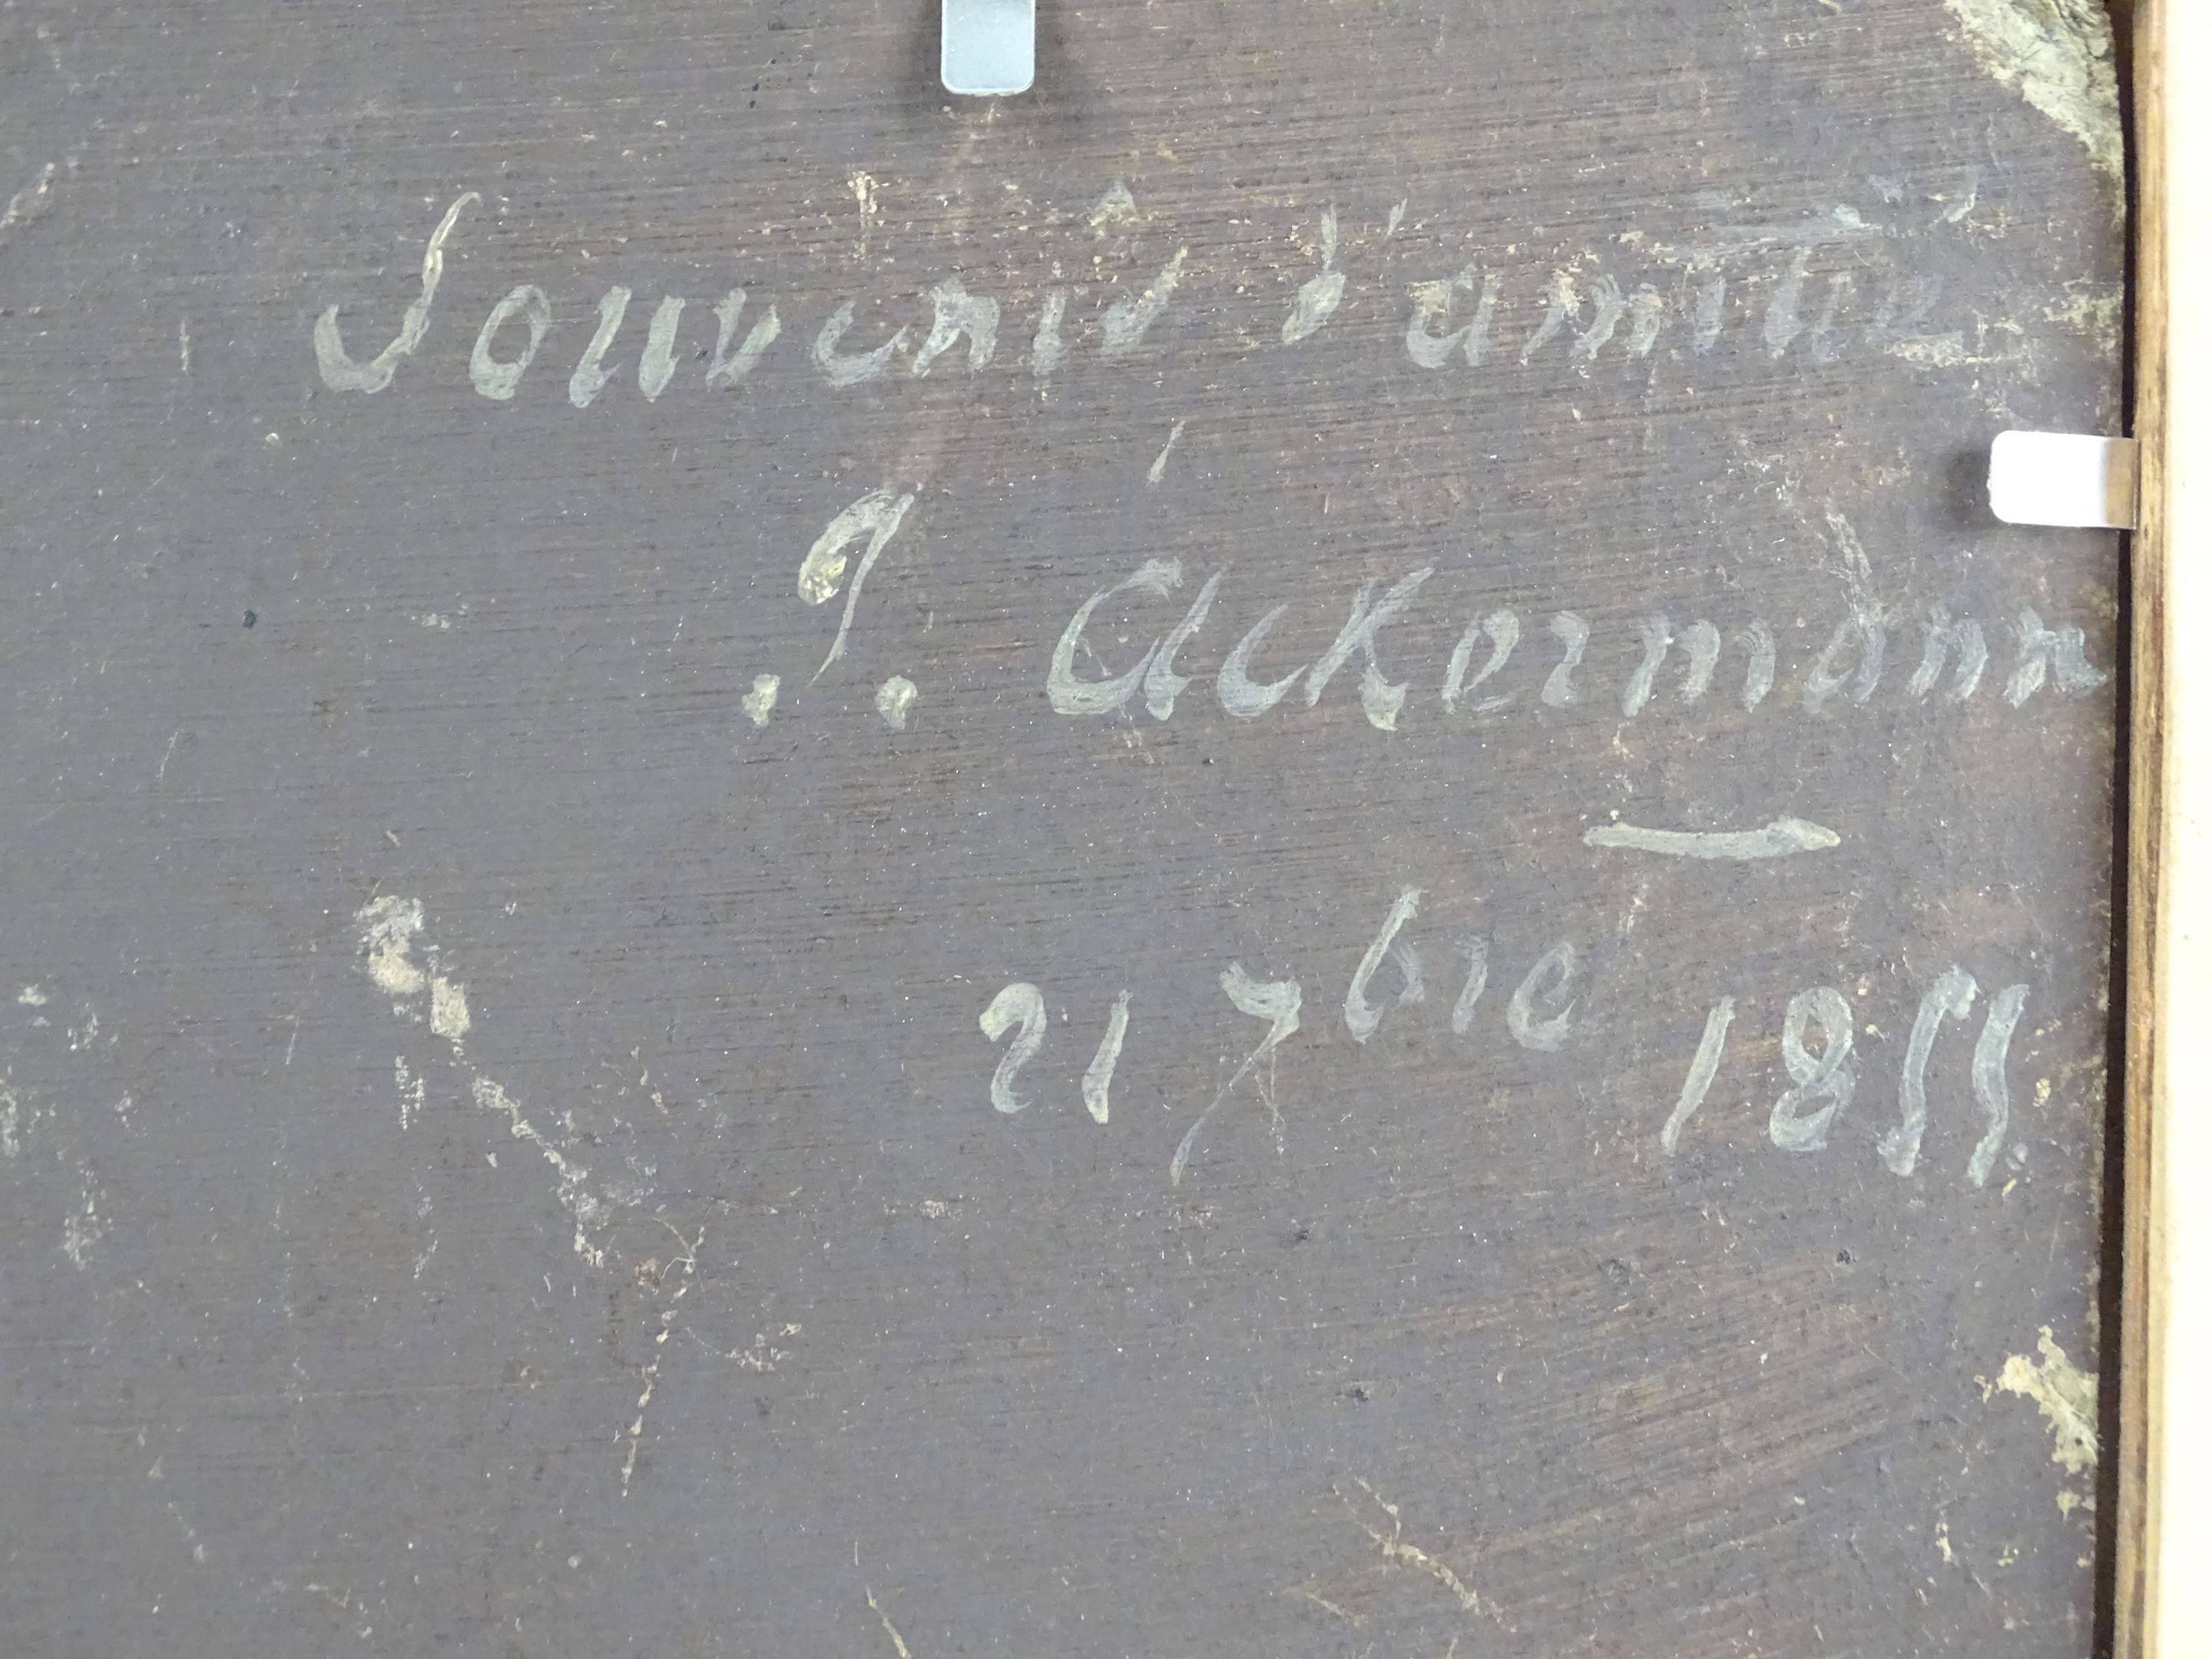 Souvenir d'amitié
J. Ackermann
21 7bre 1851.